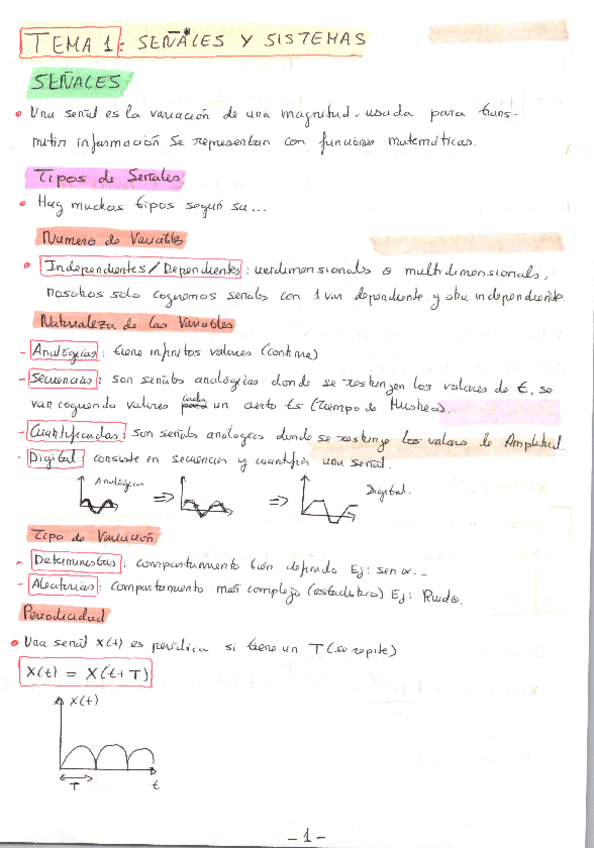 TEMA 1: SEÑALES Y SISTEMAS
SEÑALES
• Una señal es la variación de una magnitud, usada para trans-
mitir información. Se representan con funciones matemáticas.
Tipos de Señales
• Hay muchos tipos según su...
Numero de Variables
• Independientes / Dependientes: unidimensionals o multidimensionals,
nosotros solo cogemos señals con 1 var dependiente y otra independiente.
Naturaleza de las Variables
- Analógicas: tiene infinitos valores (continua)
- Secuencias: son señals analógicas donde se restringen los valores de t, se
van cogiendo valores cada un cierto ts (tiempo de Muestreo).
- Cuantificadas: son señals analógicas donde se restringe los valors de Amplitud.
- Digital: consiste en secuenciar y cuantificar una señal.
Analógica ⇒ ⇒ Digital.
Tipo de Variación
- Deterministas: comportamiento bien definido Ej: sen α...
- Aleatorias: comportamiento mas complejo (estadistico) Ej: Ruido.
Periodicidad
• Una señal x(t) es periódica si tiene un T (se repite)
X(t) = X(t+T)
X(t)
T t
- 1 -